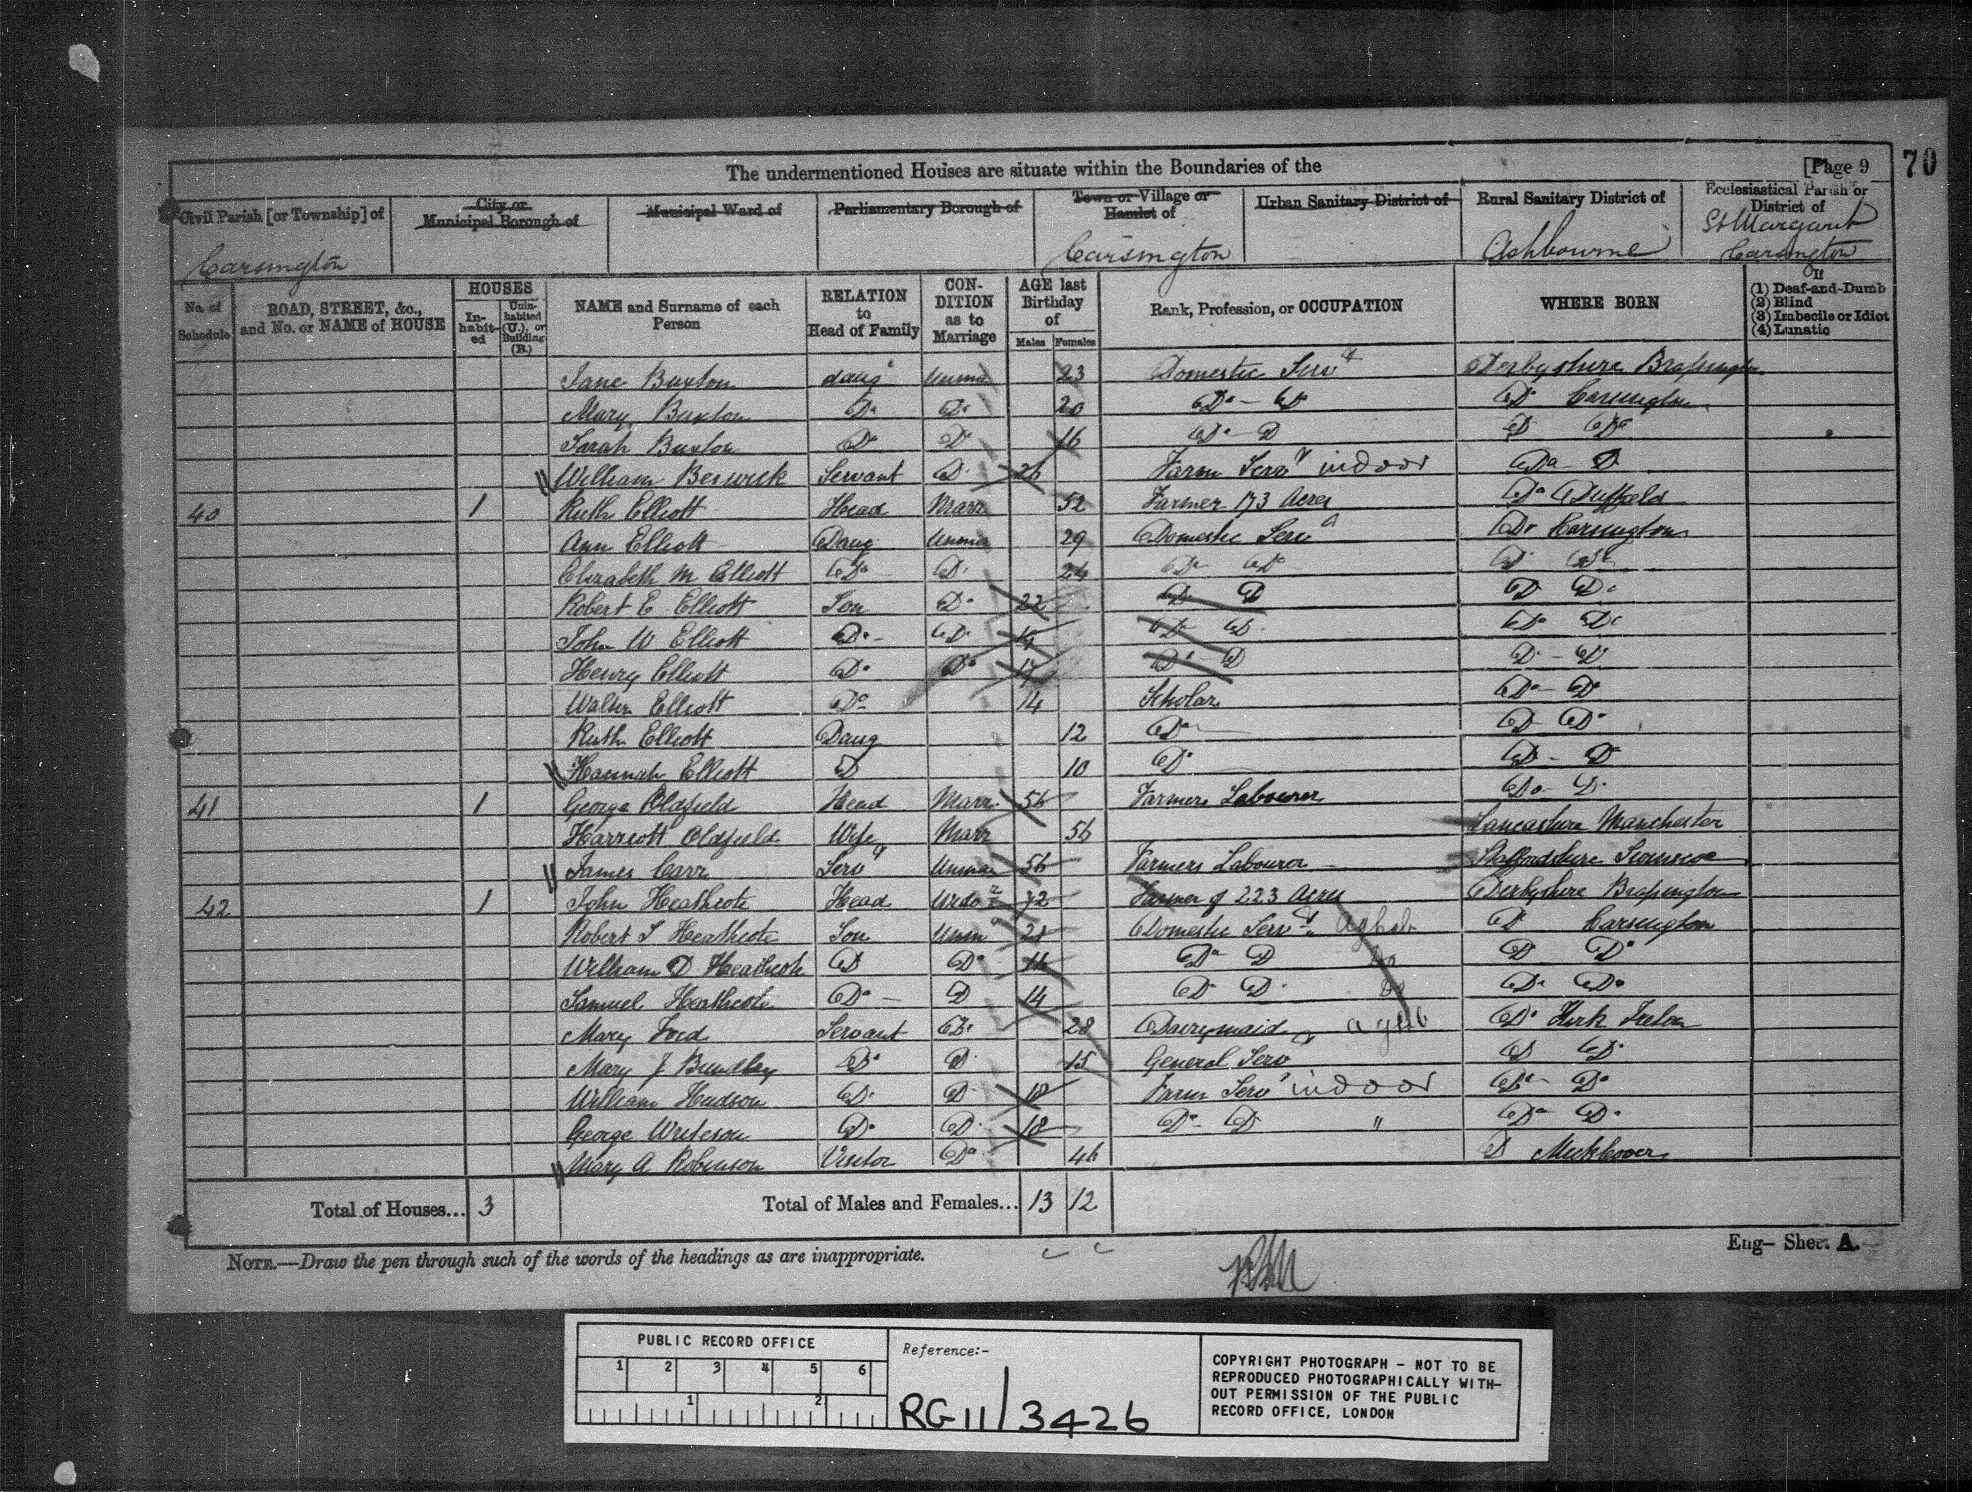 The undermentioned Houses are situate within the Boundaries of the
[Page 9
70
Civil Parish [or Township] of
City or Municipal Borough of
Municipal Ward of
Parliamentary Borough of
Town or Village or Hamlet of
Urban Sanitary District of
Rural Sanitary District of
Ecclesiastical Parish or District of
Carsington
Carsington
Ashbourne
St Margaret Carsington
No. of Schedule
ROAD, STREET, &c., and No. or NAME of HOUSE
HOUSES
In-habit-ed
Unin-habited (U.), or Building (B.)
NAME and Surname of each Person
RELATION to Head of Family
CON-DITION as to Marriage
AGE last Birthday of
Males
Females
Rank, Profession, or OCCUPATION
WHERE BORN
If
(1) Deaf-and-Dumb
(2) Blind
(3) Imbecile or Idiot
(4) Lunatic
Jane Buxton daug Unmar 23 Domestic Servt Derbyshire Brassington
Mary Buxton Do Do 20 Do - Do Do Carsington
Sarah Buxton Do Do 16 Do D D Do
William Beswick Servant D 26 Farm Servt indoor Do D
40 1 Ruth Elliott Head Marr 52 Farmer 173 Acres Do Duffield
Ann Elliott Daug Unmar 29 Domestic Servt Do Carsington
Elizabeth M Elliott Do D 24 Do Do D Do
Robert E Elliott Son Do 22 D D D Do
John W Elliott Do Do D D Do Do
Henry Elliott Do Do 17 Do D D - D
Walter Elliott Do 14 Scholar Do - Do
Ruth Elliott Daug 12 Do D Do
Hannah Elliott D 10 Do Do - D
41 1 George Oldfield Head Marr 56 Farmers Labourer Do D
Harriott Oldfield Wife Marr 56 Lancashire Manchester
James Carr Servt Unmar 56 Farmers Labourer Staffordshire
42 1 John Heathcote Head Widr 72 Farmer of 223 Acres Derbyshire Brassington
Robert S Heathcote Son Unm 21 Domestic Servt D Carsington
William D Heathcote D Do 16 Do D D Do
Samuel Heathcote Do D 14 D D Do Do
Mary Ford Servant Do 28 Dairymaid Do Kirk Ireton
Mary J Do D 15 General Servt D D
William Hudson D D 18 Farm Servt indoor Do Do
George Do D 18 Do D " Do D
Mary A Robinson Visitor Do 46 D Mickleover
Total of Houses... 3
Total of Males and Females... 13 12
NOTE.—Draw the pen through such of the words of the headings as are inappropriate.
Eng— Sheet A.
PUBLIC RECORD OFFICE
1 2 3 4 5 6
1 2
Reference:-
RG 11/3426
COPYRIGHT PHOTOGRAPH - NOT TO BE
REPRODUCED PHOTOGRAPHICALLY WITH-
OUT PERMISSION OF THE PUBLIC
RECORD OFFICE, LONDON